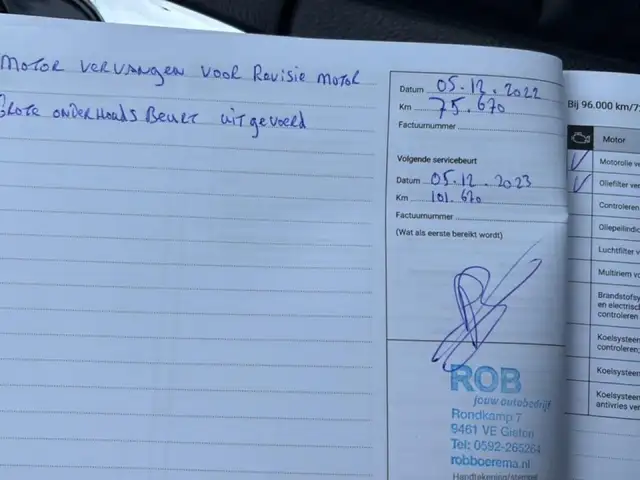 Motor vervangen voor Revisie motor
Grote onderhouds Beurt uitgevoerd
Datum 05.12.2022
Km 75.670
Factuurnummer
Volgende servicebeurt
Datum 05.12.2023
Km 101.670
Factuurnummer
(Wat als eerste bereikt wordt)
ROB
jouw autobedrijf
Rondkamp 7
9461 VE Gieten
Tel: 0592-265264
robboerema.nl
Handtekening/stempel
Bij 96.000 km/7
Motor
Motorolie ve
Oliefilter ver
Controleren
Oliepeilindic
Luchtfilter v
Multiriem v
Brandstofsy
en electrisch
controleren
Koelsysteem
controleren:
Koelsysteem
Koelsysteem
antivries ver